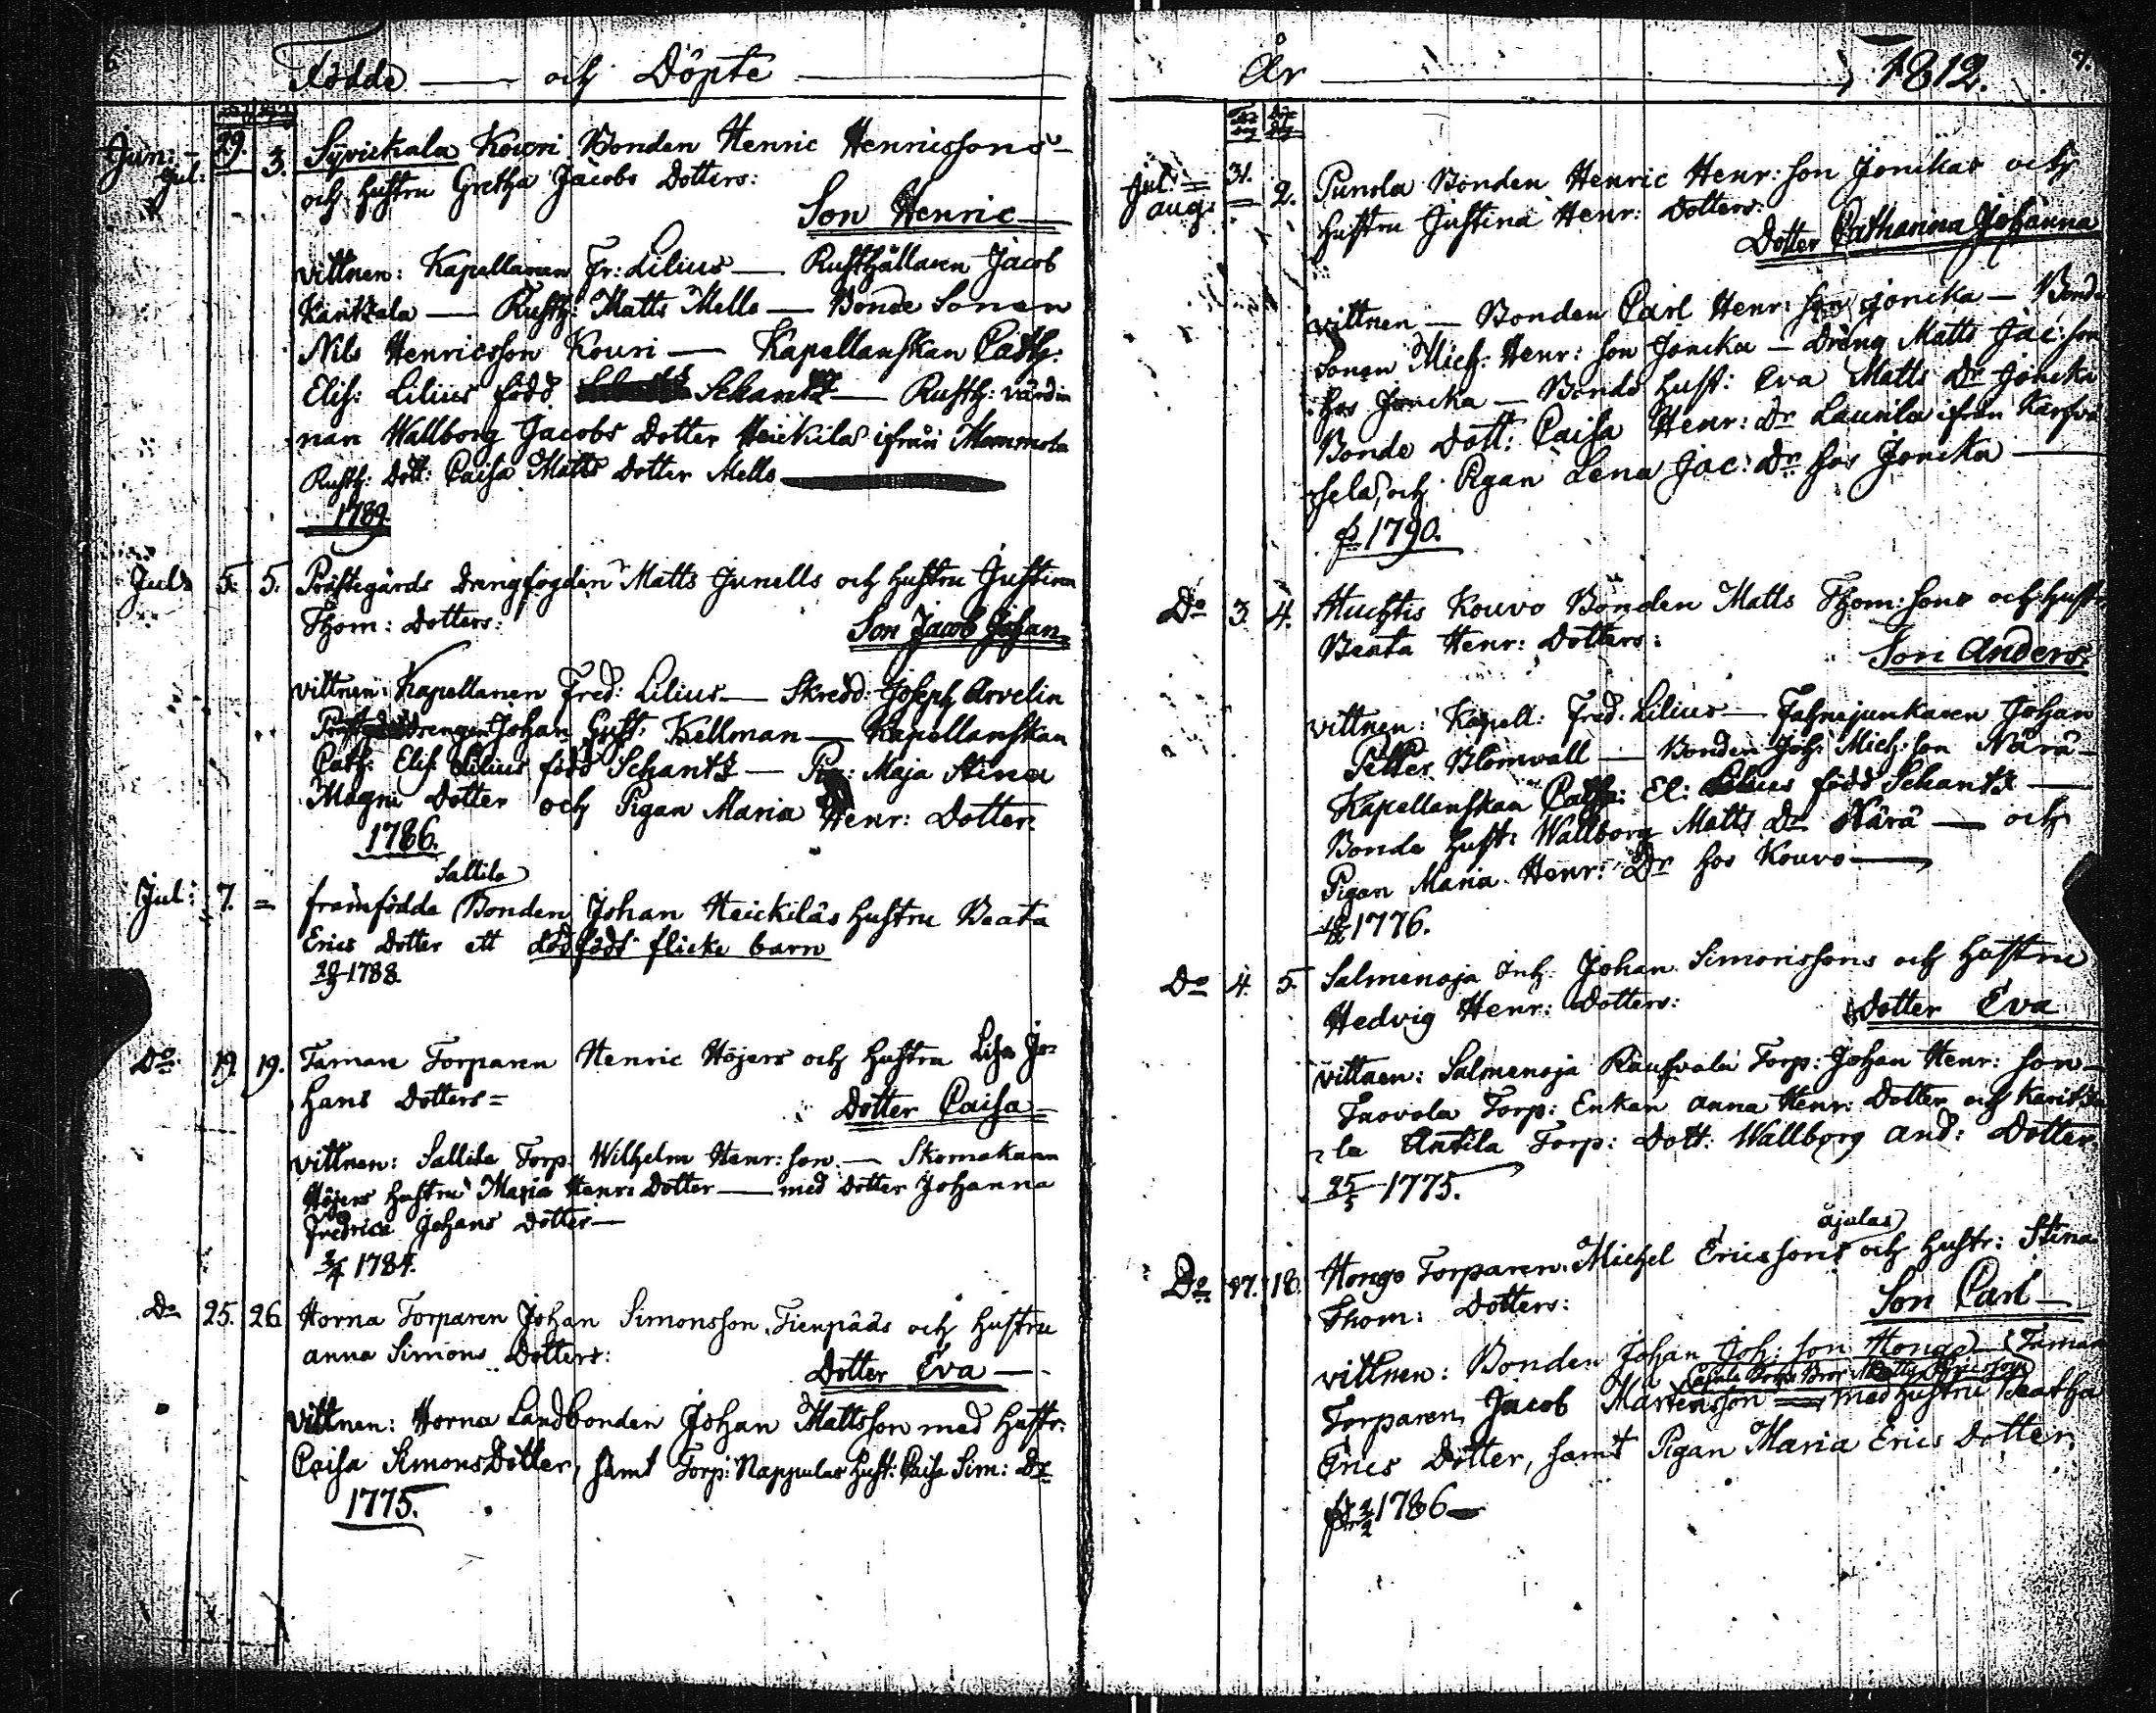 6
Födde — och Döpte —
Jun: 29. Syvickala Kouri Bonden Henric Henricssons
Jul: 3. och hustru Gretha Jacobs Dotters:
Son Henric
vittnen: Kapellanen Fr: Lilius — Rusthållaren Jacob
Kantkala — Rusth: Matts Mello — Bonde Sonen
Nils Henricsson Kouri — Kapellanskan Cath:
Elis: Lilius född Schantz — Rusth: värdin
nan Wallborg Jacobs Dotter Heickilas ifrån Mammola
Rusth: Dott: Caisa Matts Dotter Mello
1789.
Jul: 5. 5. Prästegårds drengfogden Matts Junells och hustru Justina
Thom: Dotters:
Son Jacob Johan
vittnen: Kapellanen Fred: Lilius — Skredd: Joseph Arvelin
drengen Johan Gust: Kellman — Kapellanskan
Cath: Elis: Lilius född Schantz — Pig: Maja Stina
Magni Dotter och Pigan Maria Henr: Dotter
1786.
Sallila
Jul: 7. = framfödde Bonden Johan Heickiläs hustru Beata
Erics Dotter ett dödfödt flicke barn
1788.
Do 19. 19. Tamare Torparen Henric Höjers och hustru Lisa Jo=
hans Dotters=
Dotter Caisa
vittnen: Sallila Torp: Wilhelm Henr: son — Skomakaren
Höjers hustru Maria Henr: Dotter — med dotter Johanna
Fredrica Johans dotter —
1784.
Do 25. 26 Horna Torparen Johan Simonsson Tienpääs och hustru
anna Simons Dotters:
Dotter Eva —
Vittnen: Horna Landbonden Johan Mattsson med hustr:
Caisa Simons Dotter, samt Torp: Nappulas hust: Caisa Sim: Dr
1775.
År — 1812.
7.
Jul: = 31. Punola Bonden Henric Henr: son Jonckas och
aug: = 2. hustru Justina Henr: Dotters:
Dotter Catharina Johanna
vittnen — Bonden Carl Henr: son Joncka — Bonde
Sonen Mich: Henr: son Joncka — Dräng Matts Jac: son
hos Joncka — Bonde hust: Eva Matts Dr Joncka
Bonde Dott: Caisa Henr: Dr Laurila ifrån Karsva
sela, och Pigan Lena Jac: Dr hos Joncka —
1790.
Do 3. 4. Huchtis Kouvo Bonden Matts Thom: sons och hustr
Beata Henr: Dotters:
Son Anders.
vittnen: Kapell: Fred: Lilius — Fahnejunkaren Johan
Petter Blomvall — Bonden Joh: Mich: son Närä —
Kapellanskan Cath: El: Lilius född Schantz —
Bonde hust: Wallborg Matts Dr Närä — och
Pigan Maria Henr: Dr hos Kouvo —
1776.
Do 4. 5. Salmenoja Inh: Johan Simonssons och hustru
Hedvig Henr: Dotters:
Dotter Eva
vittnen: Salmenoja Torp: Johan Henr: son —
Torp: Enkan anna Henr: Dotter och
la Antila Torp: Dott: Wallborg And: Dotter
25/5 1775.
äjalas
Do 17. 18. Hongo Torparen Michel Ericssons och hustr: Stina
Thom: Dotters:
Son Carl —
vittnen: Bonden Johan Joh: son Hongo — Tamar
Torparen Jacob Mårtensson — med hustru Beatha
Erics Dotter, samt Pigan Maria Erics Dotter
1786